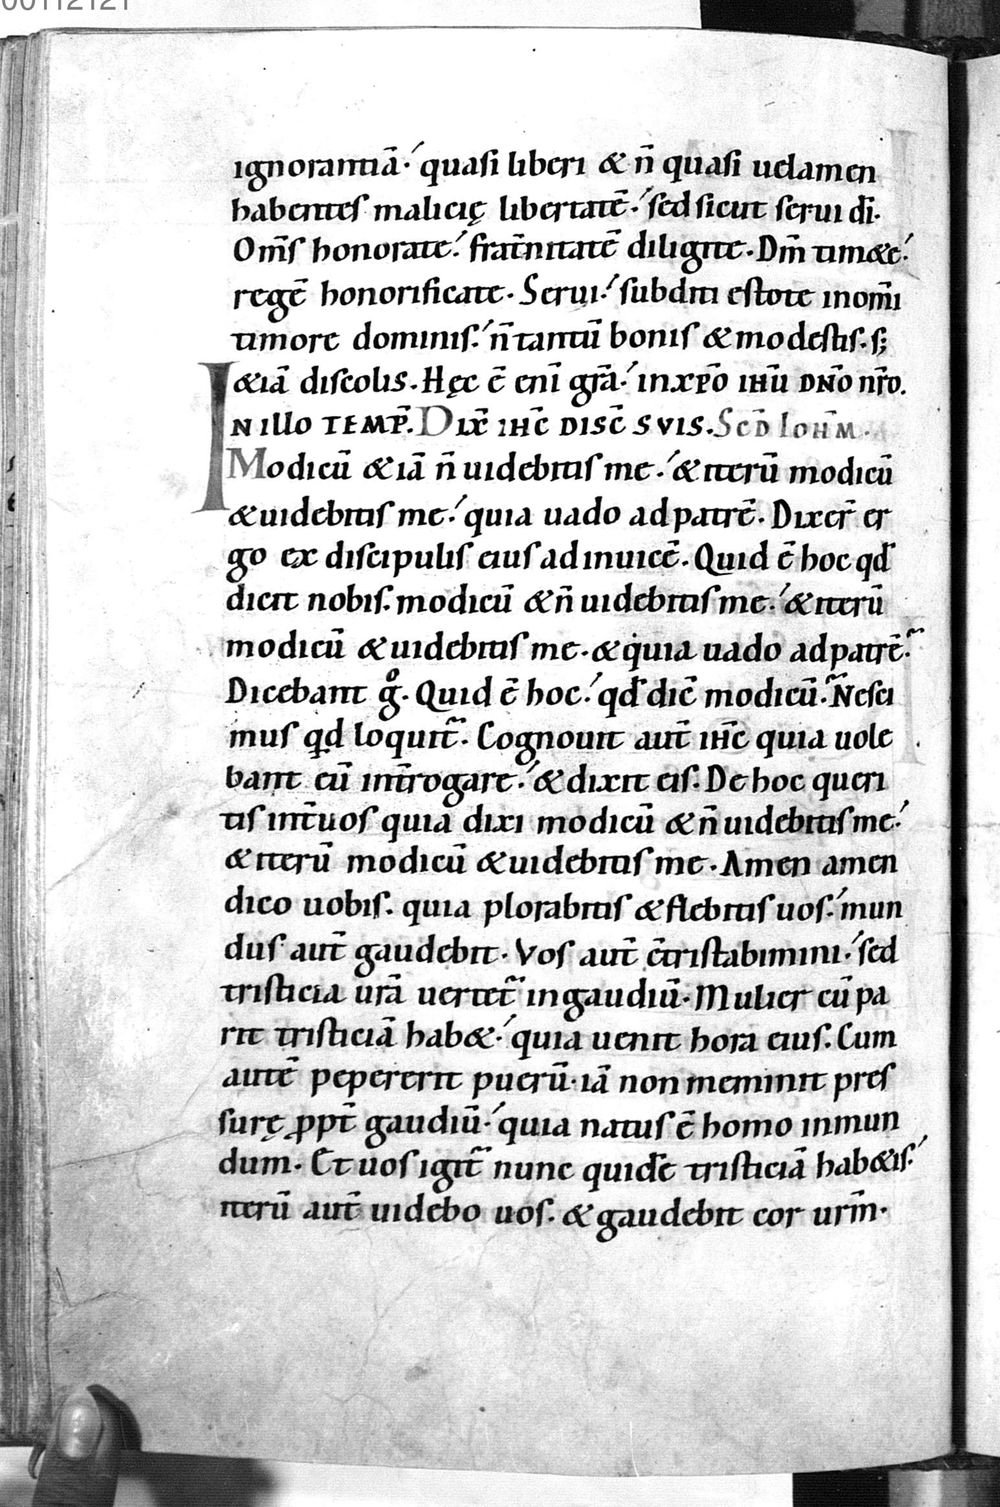 00112121
ignorantiā. quasi liberi & n̄ quasi uelamen
habentes malicię libertatē. sed sicut serui dī.
Om̄s honorate. frat̄nitatē diligite. Dm̄ tim&e.
regē honorificate. Serui. subditi estote inom̄i
timore dominis. n̄ tantū bonis & modestis. s;
&iā discolis. Hęc ē eni̅ gr̄a. in xp̄o ihū dn̄o nr̄o.
IN illo TEMP̄. Dix̄ ihc̄ DISC̄ SVIS. Sc̄d Ioh̄m.
Modicū &iā n̄ uidebitis me. & iterū modicū
& uidebitis me. quia uado ad patrē. Dixer̄ er
go ex discipulis eius adinuicē. Quid ē hoc qd̄
dicit nobis. modicū & n̄ uidebitis me. & iterū
modicū & uidebitis me. & quia uado ad patrē.
Dicebant gͦ. Quid ē hoc. qd̄ dic̄ modicū. Nesci
mus qd loquit̄. Cognouit aut̄ ihc̄ quia uole
bant eū int̄rogare. & dixit eis. De hoc queri
tis int̄ uos quia dixi modicū & n̄ uidebitis me.
& iterū modicū & uidebitis me. Amen amen
dico uobis. quia plorabitis & flebitis uos. mun
dus aut̄ gaudebit. Vos aut̄ c̄tristabimini. sed
tristicia ur̄a uertet̄ in gaudiū. Mulier cū pa
rit tristiciā hab&. quia uenit hora eius. Cum
autē pepererit puerū. iā non meminit pres
surę ꝓpt̄ gaudiū. quia natus ē homo inmun
dum. Et uos igit̄ nunc quidē tristiciā hab&is.
iterū aut̄ uidebo uos. & gaudebit cor urm̄.